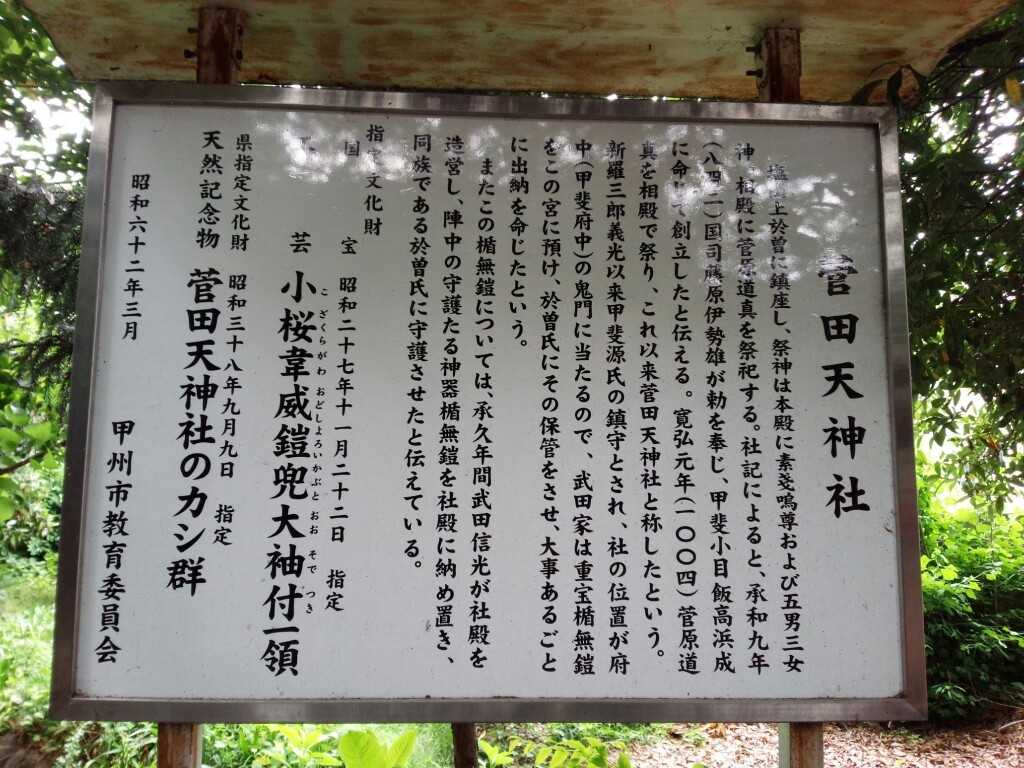 菅田天神社
塩山上於曽に鎮座し、祭神は本殿に素戔嗚尊および五男三女
神、相殿に菅原道真を祭祀する。社記によると、承和九年
（八四二）国司藤原伊勢雄が勅を奉じ、甲斐小目飯高浜成
に命じて創立したと伝える。寛弘元年（一〇〇四）菅原道
真を相殿で祭り、これ以来菅田天神社と称したという。
新羅三郎義光以来甲斐源氏の鎮守とされ、社の位置が府
中（甲斐府中）の鬼門に当たるので、武田家は重宝楯無鎧
をこの宮に預け、於曽氏にその保管をさせ、大事あるごと
に出納を命じたという。
またこの楯無鎧については、承久年間武田信光が社殿を
造営し、陣中の守護たる神器楯無鎧を社殿に納め置き、
同族である於曽氏に守護させたと伝えている。
指定文化財
国宝 昭和二十七年十一月二十二日 指定
芸 小桜韋威鎧兜大袖付一領
こざくらがわおどしよろいかぶとおおそでつき
県指定文化財 昭和三十八年九月九日 指定
天然記念物 菅田天神社のカシ群
昭和六十二年三月 甲州市教育委員会